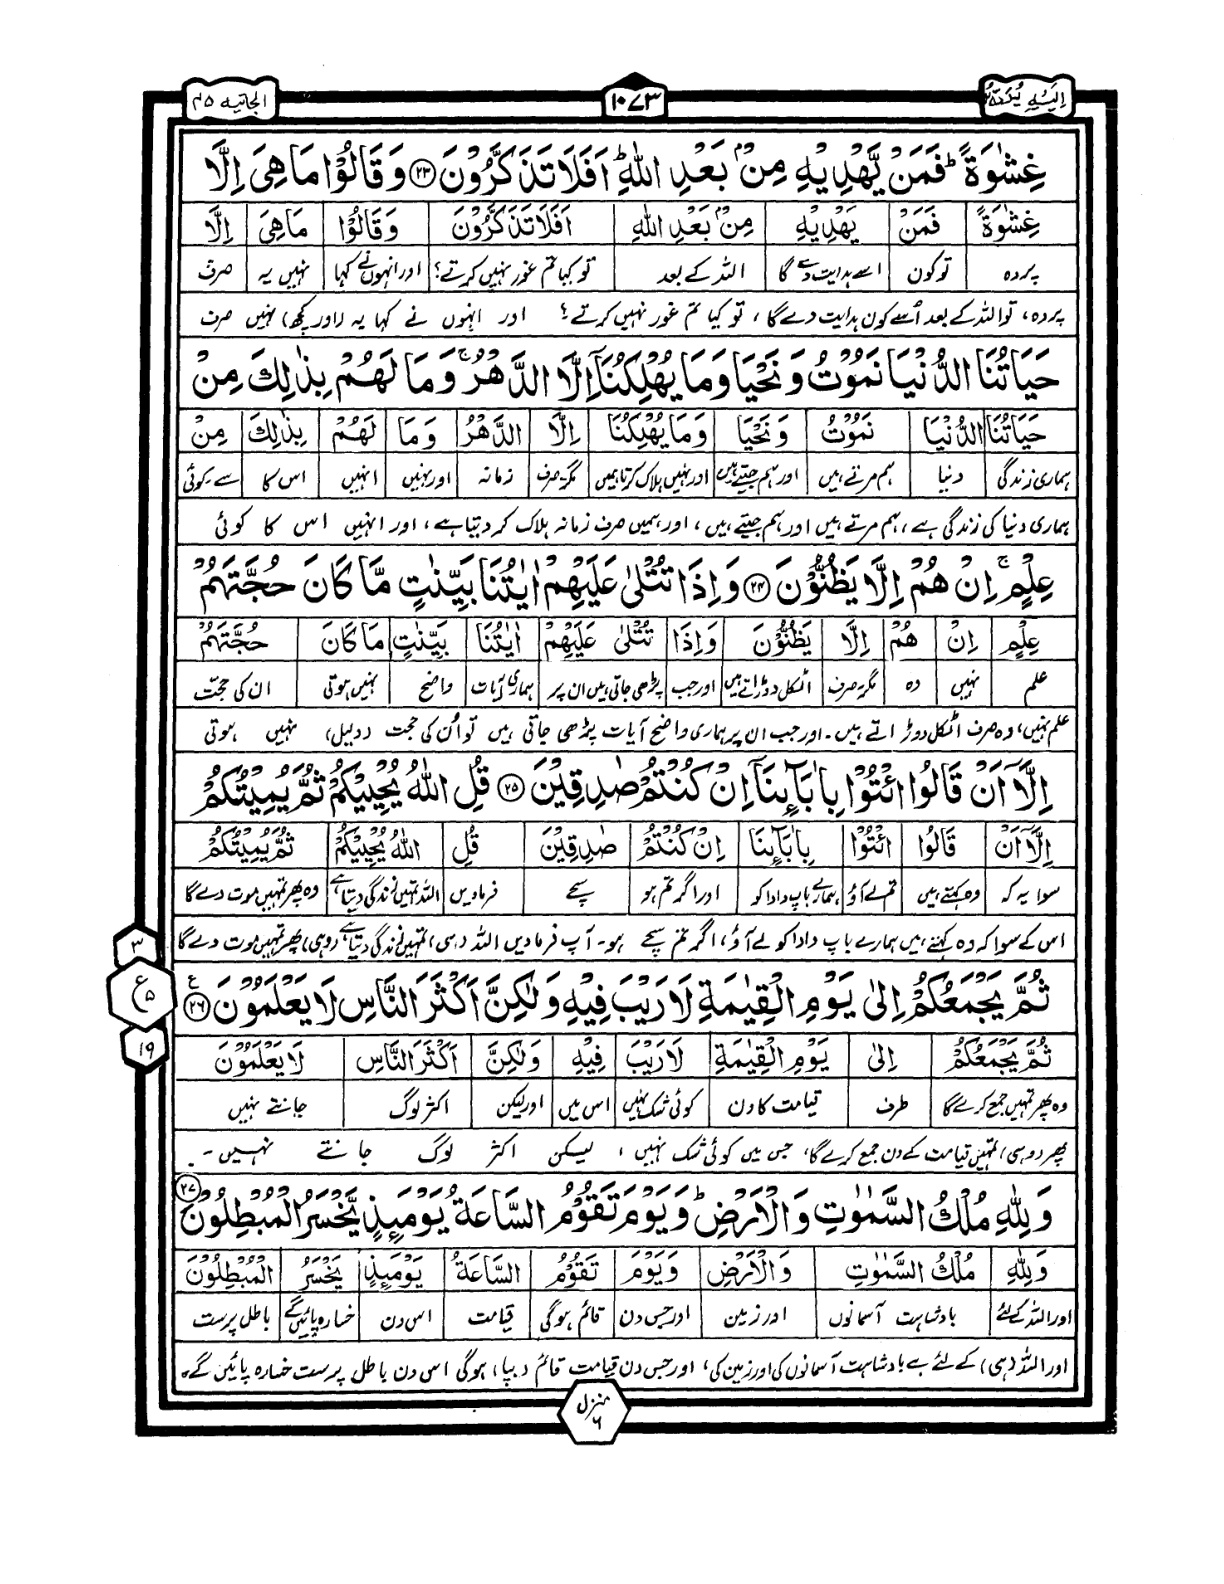 الیہ یردّ ۲۵
۱۰۷۳
الجاثیہ ۴۵
غِشٰوَةً ؕ فَمَنْ يَّهْدِيْهِ مِنْۢ بَعْدِ اللّٰهِ ؕ اَفَلَا تَذَكَّرُوْنَ ﴿۲۳﴾ وَقَالُوْا مَا هِىَ اِلَّا
غِشٰوَةً فَمَنْ يَّهْدِيْهِ مِنْۢ بَعْدِ اللّٰهِ اَفَلَا تَذَكَّرُوْنَ وَقَالُوْا مَا هِىَ اِلَّا
پردہ تو کون اسے ہدایت دے گا اللہ کے بعد تو کیا تم غور نہیں کرتے؟ اور انہوں نے کہا نہیں یہ صرف
پردہ، تو اللہ کے بعد اُسے کون ہدایت دے گا، تو کیا تم غور نہیں کرتے؟ اور انہوں نے کہا یہ (اور کچھ) نہیں صرف
حَيَاتُنَا الدُّنْيَا نَمُوْتُ وَنَحْيَا وَمَا يُهْلِكُنَاۤ اِلَّا الدَّهْرُ ۚ وَمَا لَهُمْ بِذٰلِكَ مِنْ
حَيَاتُنَا الدُّنْيَا نَمُوْتُ وَنَحْيَا وَمَا يُهْلِكُنَا اِلَّا الدَّهْرُ وَمَا لَهُمْ بِذٰلِكَ مِنْ
ہماری زندگی دنیا ہم مرتے ہیں اور ہم جیتے ہیں اور نہیں ہلاک کرتا ہمیں مگر صرف زمانہ اور نہیں انہیں اس کا سے۔کوئی
ہماری دنیا کی زندگی ہے، ہم مرتے ہیں اور ہم جیتے ہیں، اور ہمیں صرف زمانہ ہلاک کر دیتا ہے، اور انہیں اس کا کوئی
عِلْمٍ ۚ اِنْ هُمْ اِلَّا يَظُنُّوْنَ ﴿۲۴﴾ وَاِذَا تُتْلٰى عَلَيْهِمْ اٰيٰتُنَا بَيِّنٰتٍ مَّا كَانَ حُجَّتَهُمْ
عِلْمٍ اِنْ هُمْ اِلَّا يَظُنُّوْنَ وَاِذَا تُتْلٰى عَلَيْهِمْ اٰيٰتُنَا بَيِّنٰتٍ مَا كَانَ حُجَّتَهُمْ
علم نہیں وہ مگر صرف اٹکل دوڑاتے ہیں اور جب پڑھی جاتی ہیں ان پر ہماری آیات واضح نہیں ہوتی ان کی حجت
علم نہیں، وہ صرف اٹکل دوڑاتے ہیں۔ اور جب ان پر ہماری واضح آیات پڑھی جاتی ہیں تو اُن کی حجت (دلیل) نہیں ہوتی
اِلَّاۤ اَنْ قَالُوا ائْتُوْا بِاٰبَآئِنَاۤ اِنْ كُنْتُمْ صٰدِقِيْنَ ﴿۲۵﴾ قُلِ اللّٰهُ يُحْيِيْكُمْ ثُمَّ يُمِيْتُكُمْ
اِلَّاۤ اَنْ قَالُوا ائْتُوْا بِاٰبَآئِنَا اِنْ كُنْتُمْ صٰدِقِيْنَ قُلِ اللّٰهُ يُحْيِيْكُمْ ثُمَّ يُمِيْتُكُمْ
سوا یہ کہ وہ کہتے ہیں تم لے آؤ ہمارے باپ دادا کو اور اگر تم ہو سچے فرمادیں اللہ تمہیں زندگی دیتا ہے وہ پھر تمہیں موت دے گا
اس کے سوا کہ وہ کہتے ہیں ہمارے باپ دادا کو لے آؤ، اگر تم سچے ہو۔ آپ فرما دیں اللہ (ہی) تمہیں زندگی دیتا ہے (وہی) پھر تمہیں موت دے گا
ثُمَّ يَجْمَعُكُمْ اِلٰى يَوْمِ الْقِيٰمَةِ لَا رَيْبَ فِيْهِ وَلٰكِنَّ اَكْثَرَ النَّاسِ لَا يَعْلَمُوْنَ ﴿۲۶﴾ ع
۳
ع ۵
۱۹
ثُمَّ يَجْمَعُكُمْ اِلٰى يَوْمِ الْقِيٰمَةِ لَا رَيْبَ فِيْهِ وَلٰكِنَّ اَكْثَرَ النَّاسِ لَا يَعْلَمُوْنَ
وہ پھر تمہیں جمع کرے گا طرف قیامت کا دن کوئی شک نہیں اس میں اور لیکن اکثر لوگ جانتے نہیں
پھر (وہی) تمہیں قیامت کے دن جمع کرے گا، جس میں کوئی شک نہیں، لیکن اکثر لوگ جانتے نہیں۔
وَلِلّٰهِ مُلْكُ السَّمٰوٰتِ وَالْاَرْضِ ؕ وَيَوْمَ تَقُوْمُ السَّاعَةُ يَوْمَئِذٍ يَّخْسَرُ الْمُبْطِلُوْنَ ﴿۲۷﴾
وَلِلّٰهِ مُلْكُ السَّمٰوٰتِ وَالْاَرْضِ وَيَوْمَ تَقُوْمُ السَّاعَةُ يَوْمَئِذٍ يَّخْسَرُ الْمُبْطِلُوْنَ
اور اللہ کے لئے بادشاہت آسمانوں اور زمین اور جس دن قائم ہوگی قیامت اس دن خسارہ پائیں گے باطل پرست
اور اللہ (ہی) کے لئے ہے بادشاہت آسمانوں کی اور زمین کی، اور جس دن قیامت قائم (بپا) ہوگی اس دن باطل پرست خسارہ پائیں گے۔
منزل ۶